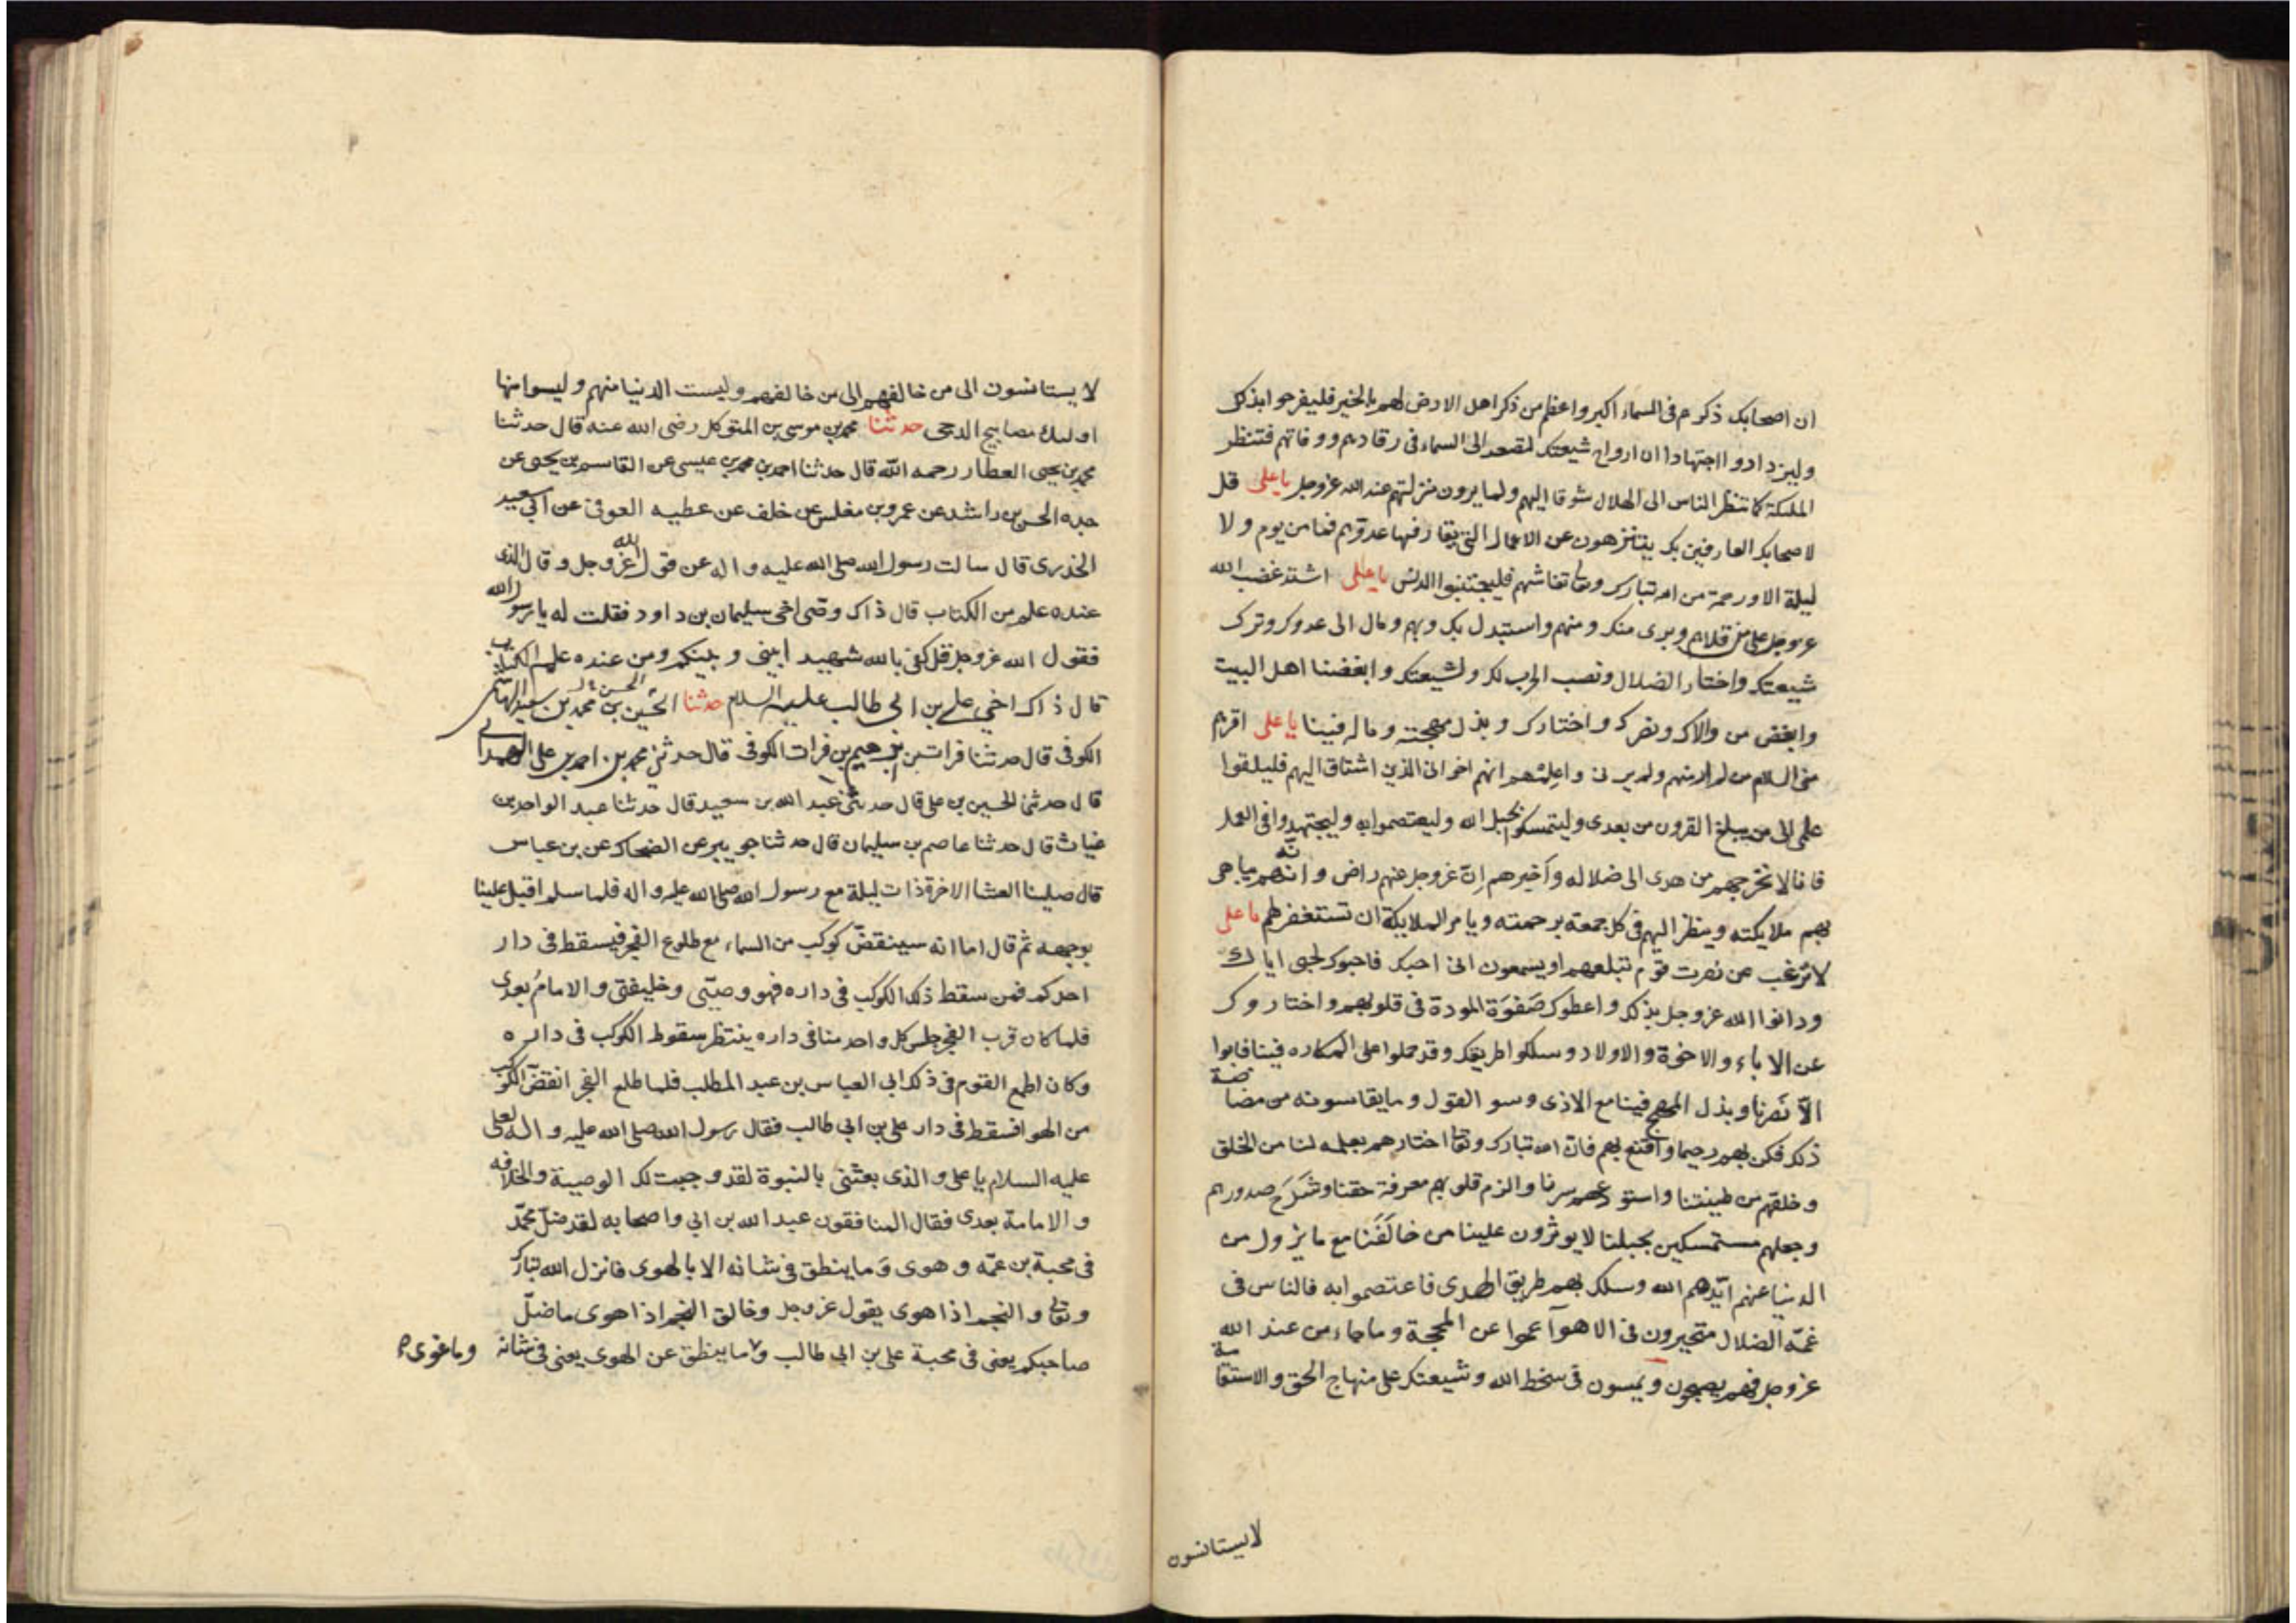 ان اصحابك ذكرهم فى السماء اكبر واعظم من ذكر اهل الارض لهم بالخير فليفرحوا بذلك
وليزدادوا اجتهادا ان ارواح شيعتك لتصعد الى السماء فى رقادهم ووفاتهم فتنظر
الملئكة كما تنظر الناس الى الهلال شوقا اليهم ولما يرون منزلتهم عند الله عزوجل يا على قل
لاصحابك العارفين بك يتنزهون عن الاعمال التى يقارفها عدوهم فما من يوم ولا
ليلة الا ورحمة من الله تبارك وتعالى تغاشهم فليجتنبوا الدنس يا على اشتد غضب الله
عزوجل على من قلاهم وبرى منك ومنهم واستبدل بك وبهم ومال الى عدوك وترك
شيعتك واختار الضلال ونصب الحرب لك ولشيعتك وابغضنا اهل البيت
وابغض من والاك ونصرك واختارك وبذل مهجته وماله فينا يا على اقرئهم
منى السلام من لم ار منهم ولم يرنى واعلمهم انهم اخوانى الذين اشتاق اليهم فليلقوا
علمى الى من يبلغ القرون من بعدى وليتمسكوا بحبل الله وليعتصموا به وليجتهدوا فى العمل
فانا لا نخرجهم من هدى الى ضلاله وأخبرهم انّ عزوجل عنهم راض وانه يباهى
بهم ملايكته وينظر اليهم فى كل جمعة برحمته ويامر الملايكة ان تستغفر لهم يا على
لا ترغب عن نصرت قوم تبلغهم او يسمعون انى احبك فاحبوك لحبى اياك
ودانوا الله عزوجل بذلك واعطوك صَفوَة المودة فى قلوبهم واختاروك
عن الاباء والاخوة والاولاد وسلكوا طريقك وقد حملوا على المكاره فينا فابوا
الاّ نَصرنا وبذل المهج فينا مع الاذى وسو القول وما يقاسونه من مضاضة
ذلك فكن بهم رحيما واقنع بهم فان الله تبارك وتعالى اختارهم بعلمه لنا من الخلق
وخلقهم من طينتنا واستودعهم سرنا والزم قلوبهم معرفة حقنا وشَرَحَ صدورهم
وجعلهم مستمسكين بحبلنا لا يوثرون علينا من خالَفَنا مع ما يزول من
الدنيا عنهم ايّدهم الله وسلك بهم طريق الهدى فاعتصموا به فالناس فى
غمّة الضلال متحيرون فى الاهوآ عموا عن المحجة وما جاء من عند الله
عزوجل فهم يصبحون ويمسون فى سخط الله وشيعتك على منهاج الحق والاستقامة
لايستانسون
لا يستانسون الى من خالفهم الى من خالفهم وليست الدنيا منهم وليسوا منها
اوليك مصابيح الدجى حدثنا محمد بن موسى بن المتوكل رضى الله عنه قال حدثنا
محمد بن يحيى العطار رحمه الله قال حدثنا احمد بن محمد بن عيسى عن القاسم بن يحيى عن
جده الحسن بن راشد عن عمرو بن مغلس عن خلف عن عطيه العوفى عن ابى سعيد
الخدرى قال سالت رسول الله صلى الله عليه واله عن قول الله عزوجل وقال الذى
عنده علم من الكتاب قال ذاك وصى اخى سليمان بن داود فقلت له يا رسول الله
فقول الله عزوجل قل كفى بالله شهيدا بينى وبينكم ومن عنده علم الكتاب
قال ذاك اخى على بن ابى طالب عليه السلام حدثنا الحسن بن محمد بن سعيد الهاشمى
الكوفى قال حدثنا فرات بن ابرهيم بن فرات الكوفى قال حدثنى محمد بن احمد بن على الهمدانى
قال حدثنى الحسين بن على قال حدثنى عبد الله بن سعيد قال حدثنا عبد الواحد بن
غياث قال حدثنا عاصم بن سليمان قال حدثنا جويبر عن الضحاك عن بن عباس
قال صلينا العشا الاخرة ذات ليلة مع رسول الله صلى الله عليه واله فلما سلم اقبل علينا
بوجهه ثم قال اما انه سينقضّ كوكب من السماء مع طلوع الفجر فيسقط فى دار
احدكم فمن سقط ذلك الكوكب فى داره فهو وصيّى وخليفتى والامامُ بعدى
فلما كان قرب الفجر جلس كل واحد منا فى داره ينتظر سقوط الكوكب فى داره
وكان اطمع القوم فى ذلك ابى العباس بن عبد المطلب فلما طلع الفجر انقضّ الكوكب
من الهوا فسقط فى دار على بن ابى طالب فقال رسول الله صلى الله عليه واله لعلى
عليه السلام يا على والذى بعثنى بالنبوة لقد وجبت لك الوصية والخلافه
والامامة بعدى فقال المنافقون عبد الله بن ابى واصحابه لقد ضلّ محمّد
فى محبة بن عمّه وهوى وَما ينطق فى شانه الا بالهوى فانزل الله تبارك
وتعالى والنجم اذا هوى يقول عزوجل وخالق النجم اذا هوى ما ضلّ
صاحبكم يعنى فى محبة على بن ابى طالب وما ينطق عن الهوى يعنى فى شانه وما غوى